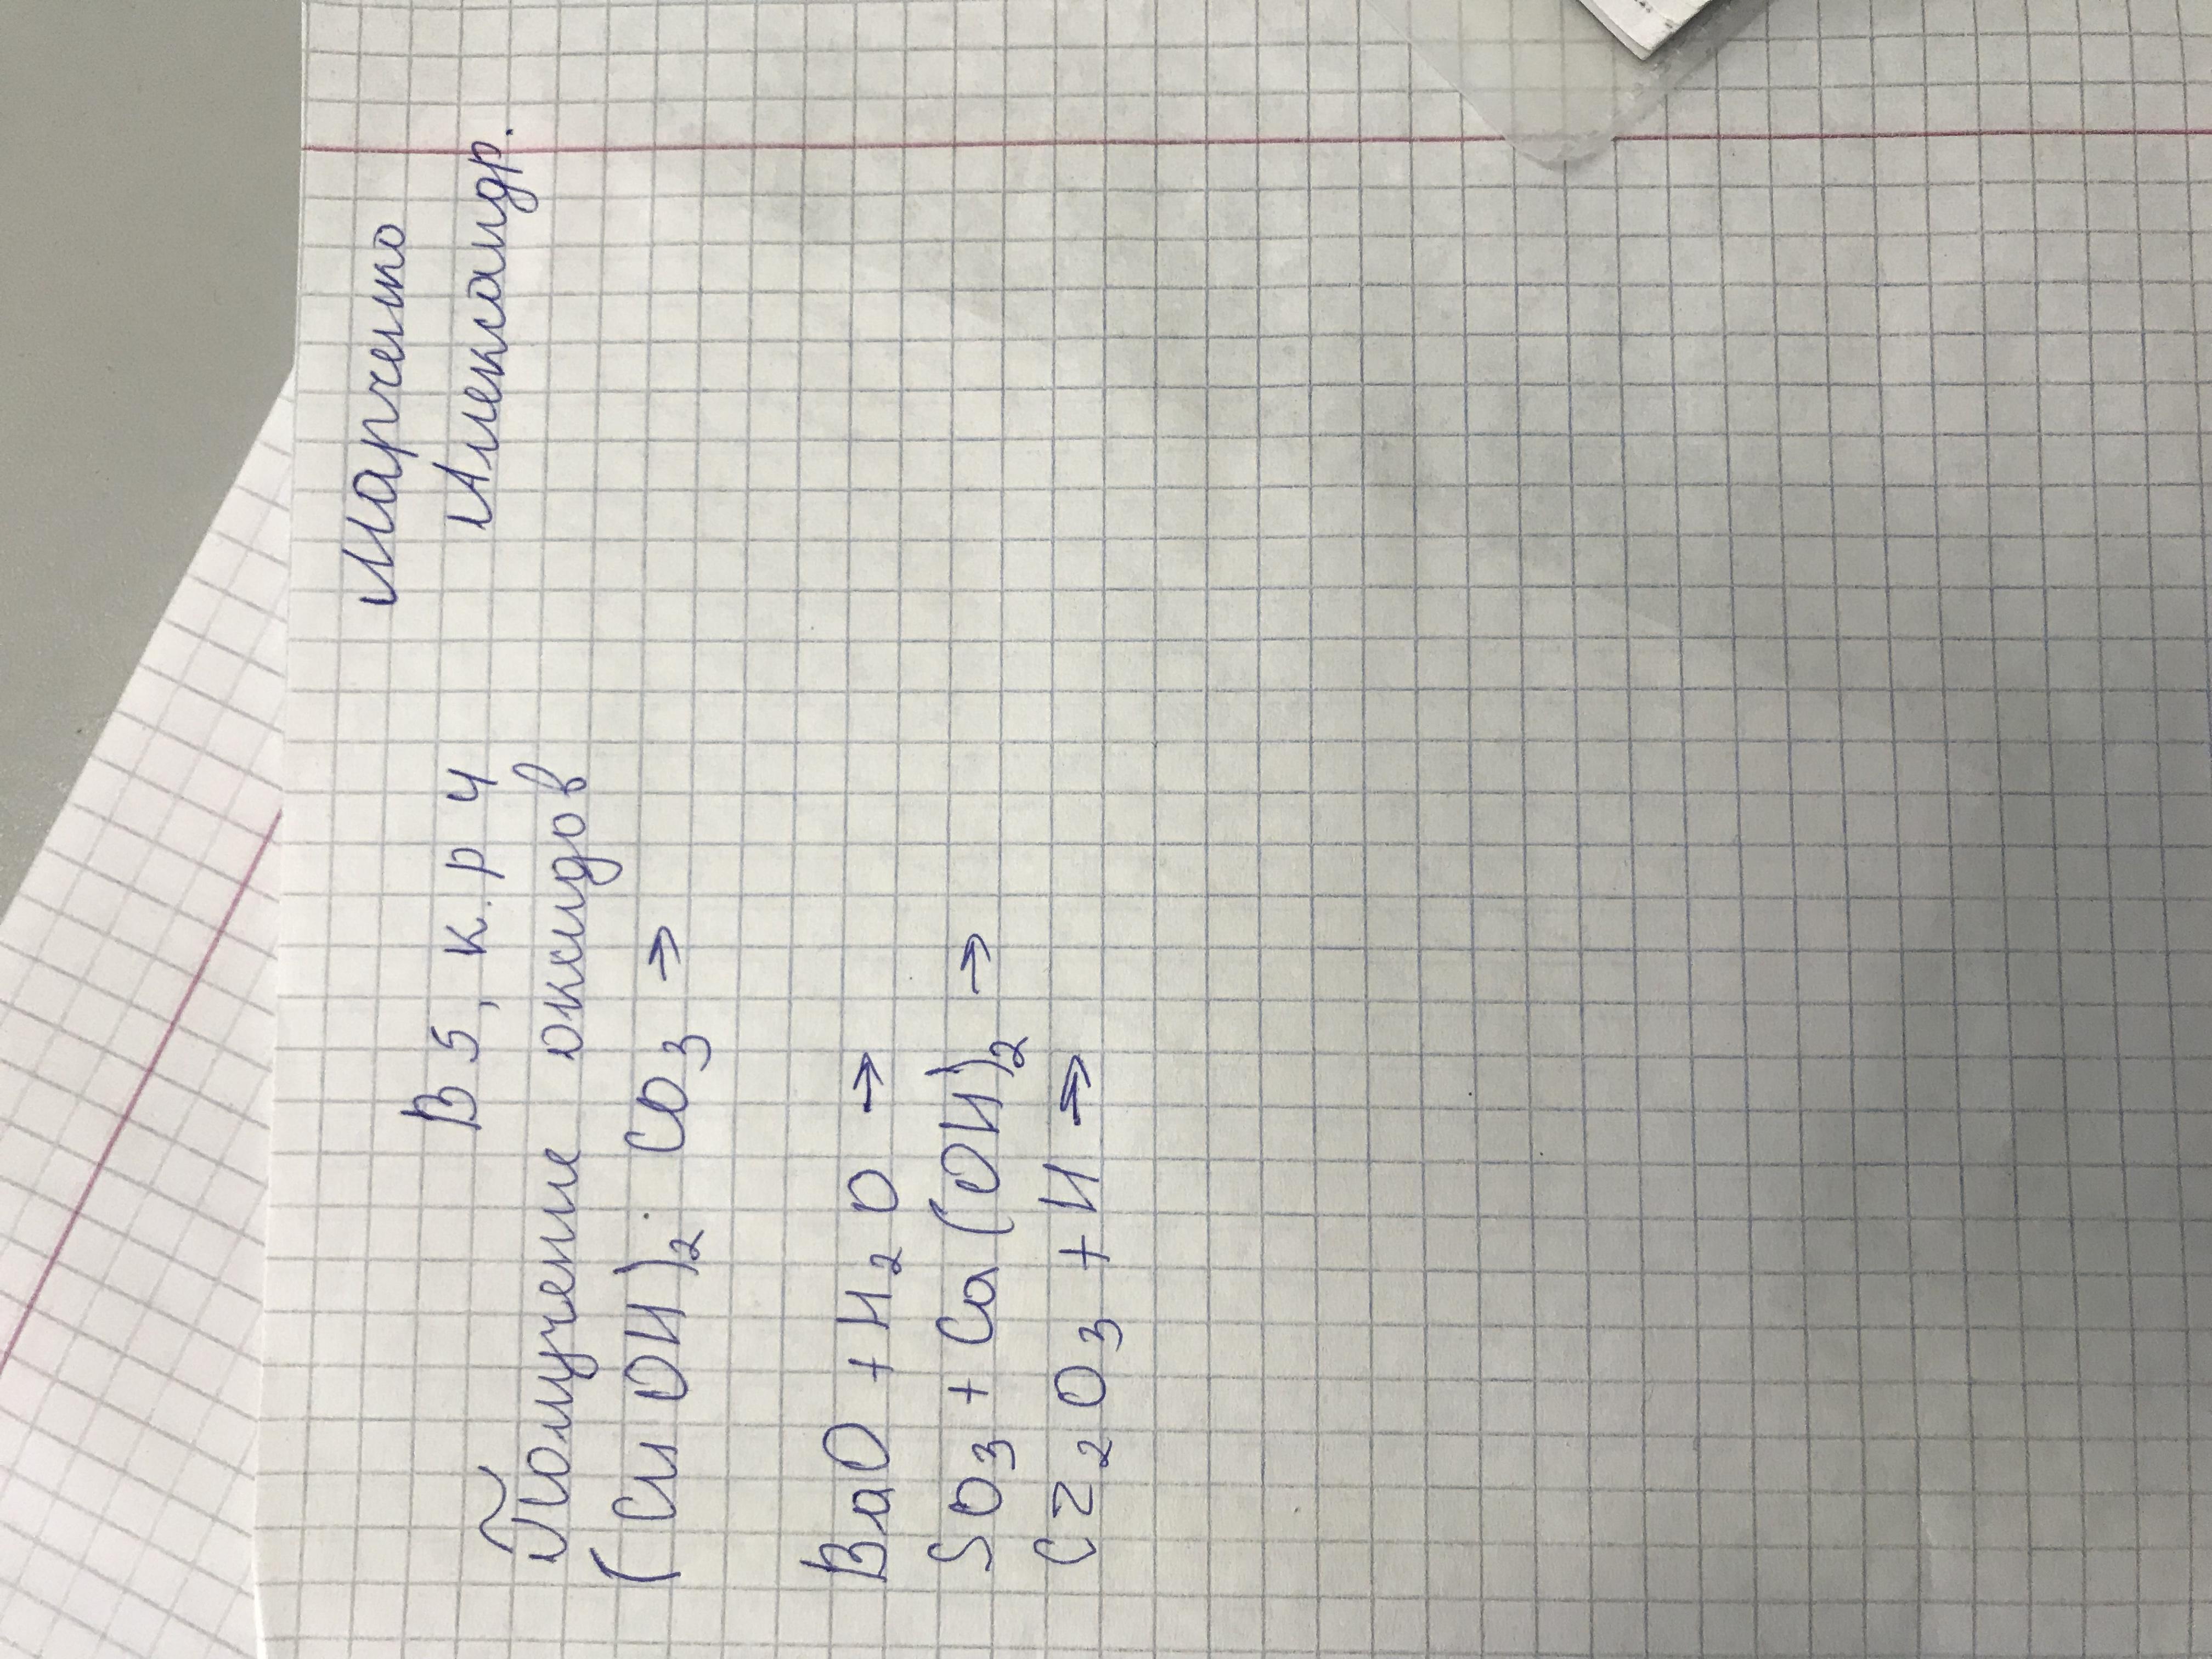 Марченко
Александр.
В 5, к.р 4
Получение оксидов
(Cu OH)₂ · CO₃ →
BaO + H₂O →
SO₃ + Ca(OH)₂ →
Cr₂O₃ + H →